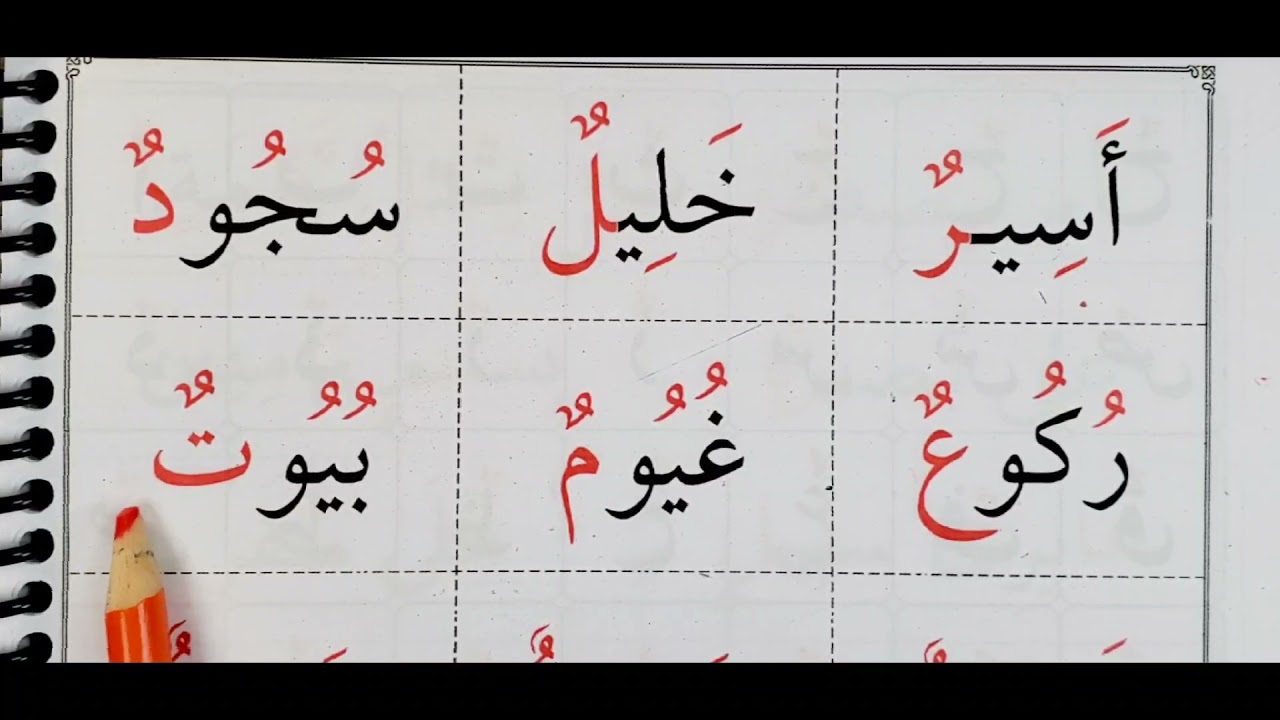 أَسِيرٌ خَلِيلٌ سُجُودٌ
رُكُوعٌ غُيُومٌ بُيُوتٌ